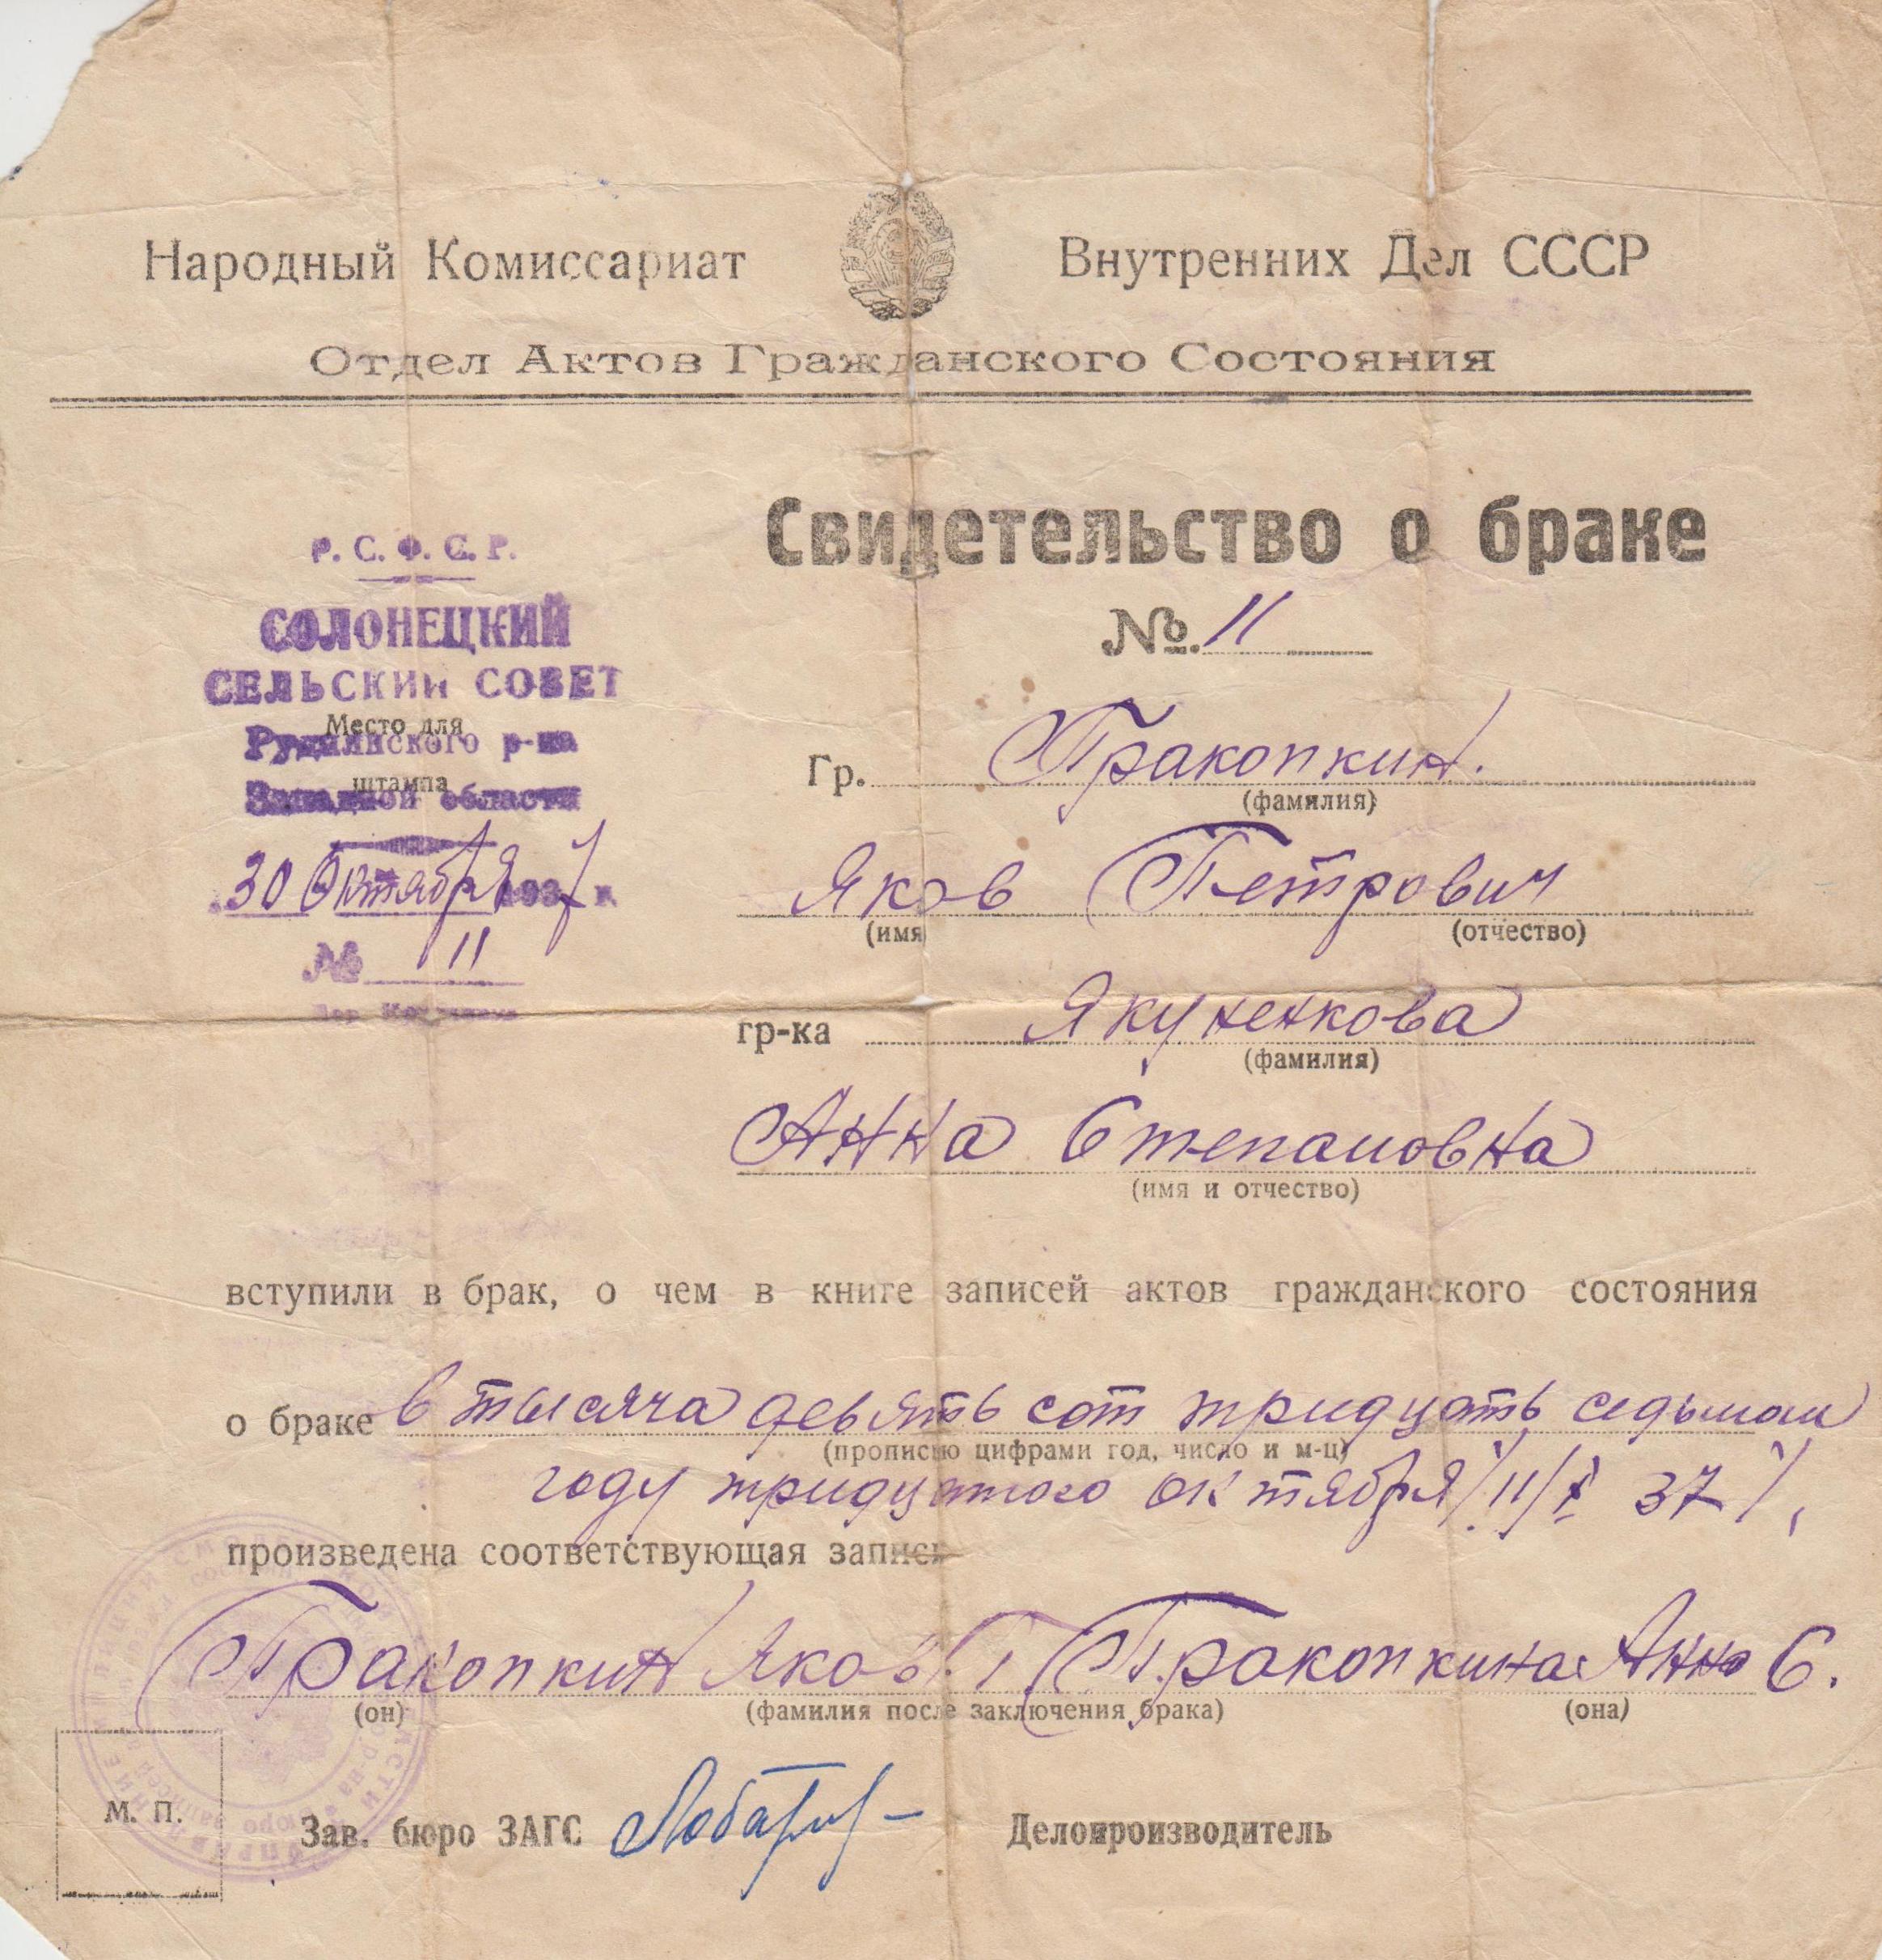 Народный Комиссариат Внутренних Дел СССР
Отдел Актов Гражданского Состояния
Свидетельство о браке
№. 11
Р. С. Ф. С. Р.
СОЛОНЕЦКИЙ
СЕЛЬСКИЙ СОВЕТ
Место для
Руднянского р-на
штампа
Западной области
30 Октября 1937 г.
№ 11
Гр. Пракопкин.
(фамилия)
Яков Петрович
(имя) (отчество)
гр-ка Якуненкова
(фамилия)
Анна Степановна
(имя и отчество)
вступили в брак, о чем в книге записей актов гражданского состояния
о браке в тысяча девять сот тридцать седьмом
(прописью цифрами год, число и м-ц)
году тридцатого октября 37
произведена соответствующая запись
Пракопкин Яков П. Пракопкина Анна С.
(он) (фамилия после заключения брака) (она)
М. П.
Зав. бюро ЗАГС Делопроизводитель